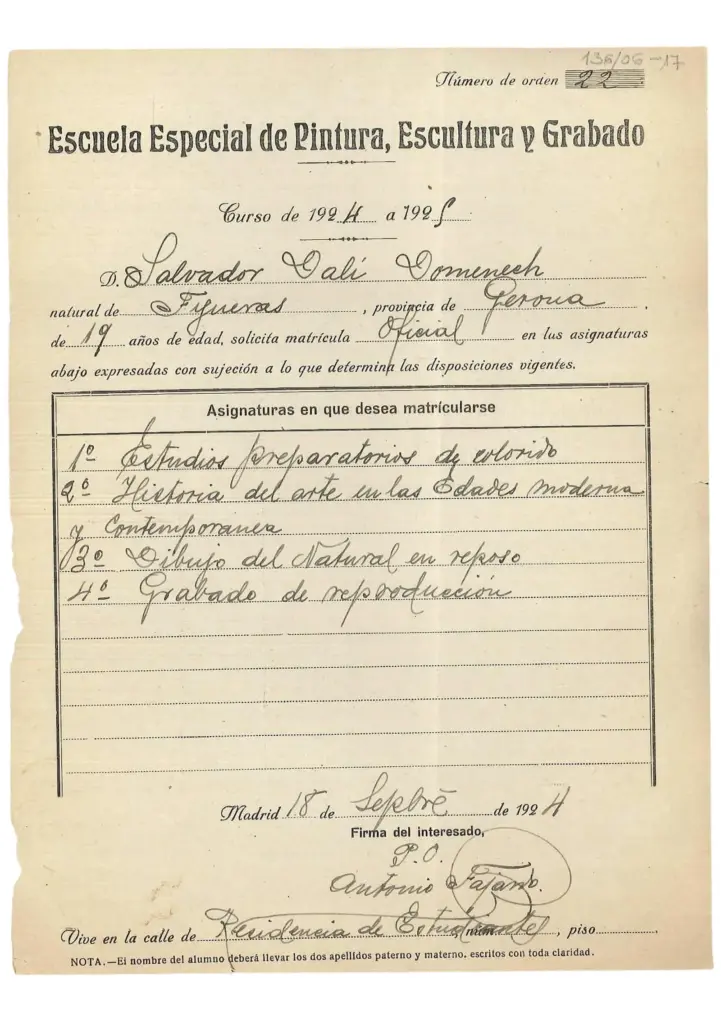 136/06-17
Número de orden 22
Escuela Especial de Pintura, Escultura y Grabado
Curso de 1924 a 1925
D. Salvador Dalí Domenech
natural de Figueras, provincia de Gerona.
de 19 años de edad, solicita matrícula Oficial en las asignaturas
abajo expresadas con sujeción a lo que determina las disposiciones vigentes.
Asignaturas en que desea matrícularse
1º Estudios preparatorios de colorido
2º Historia del arte en las Edades moderna
y Contemporanea
3º Dibujo del Natural en reposo
4º Grabado de reproducción
Madrid 18 de Sepbrè de 1924
Firma del interesado,
P.O.
Antonio Fajardo.
Vive en la calle de Residencia de Estudiantes, núm., piso
NOTA.—El nombre del alumno deberá llevar los dos apellidos paterno y materno, escritos con toda claridad.